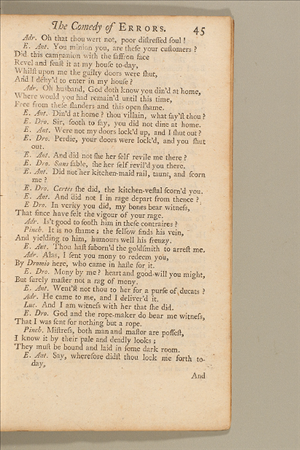 The Comedy of ERRORS. 45
Adr. Oh that thou wert not, poor distressed soul!
E. Ant. You minion you, are these your customers?
Did this companion with the saffron face
Revel and feast it at my house to-day,
Whilst upon me the guilty doors were shut,
And I deny'd to enter in my house?
Adr. Oh husband, God doth know you din'd at home,
Where would you had remain'd until this time,
Free from these slanders and this open shame.
E. Ant. Din'd at home? thou villain, what say'st thou?
E. Dro. Sir, sooth to say, you did not dine at home.
E. Ant. Were not my doors lock'd up, and I shut out?
E. Dro. Perdie, your doors were lock'd, and you shut
out.
E. Ant. And did not she her self revile me there?
E. Dro. Sans fable, she her self revil'd you there.
E. Ant. Did not her kitchen-maid rail, taunt, and scorn
me?
E. Dro. Certes she did, the kitchen-vestal scorn'd you.
E. Ant. And did not I in rage depart from thence?
E. Dro. In verity you did, my bones bear witness,
That since have felt the vigour of your rage.
Adr. Is't good to sooth him in these contraires?
Pinch. It is no shame; the fellow finds his vein,
And yielding to him, humours well his frenzy.
E. Ant. Thou hast suborn'd the goldsmith to arrest me.
Adr. Alas, I sent you mony to redeem you,
By Dromio here, who came in haste for it.
E. Dro. Mony by me? heart and good-will you might,
But surely master not a rag of mony.
E. Ant. Went'st not thou to her for a purse of ducats?
Adr. He came to me, and I deliver'd it.
Luc. And I am witness with her that she did.
E. Dro. God and the rope-maker do bear me witness,
That I was sent for nothing but a rope.
Pinch. Mistress, both man and master are possest,
I know it by their pale and deadly looks;
They must be bound and laid in some dark room.
E. Ant. Say, wherefore didst thou lock me forth to-
day,
And